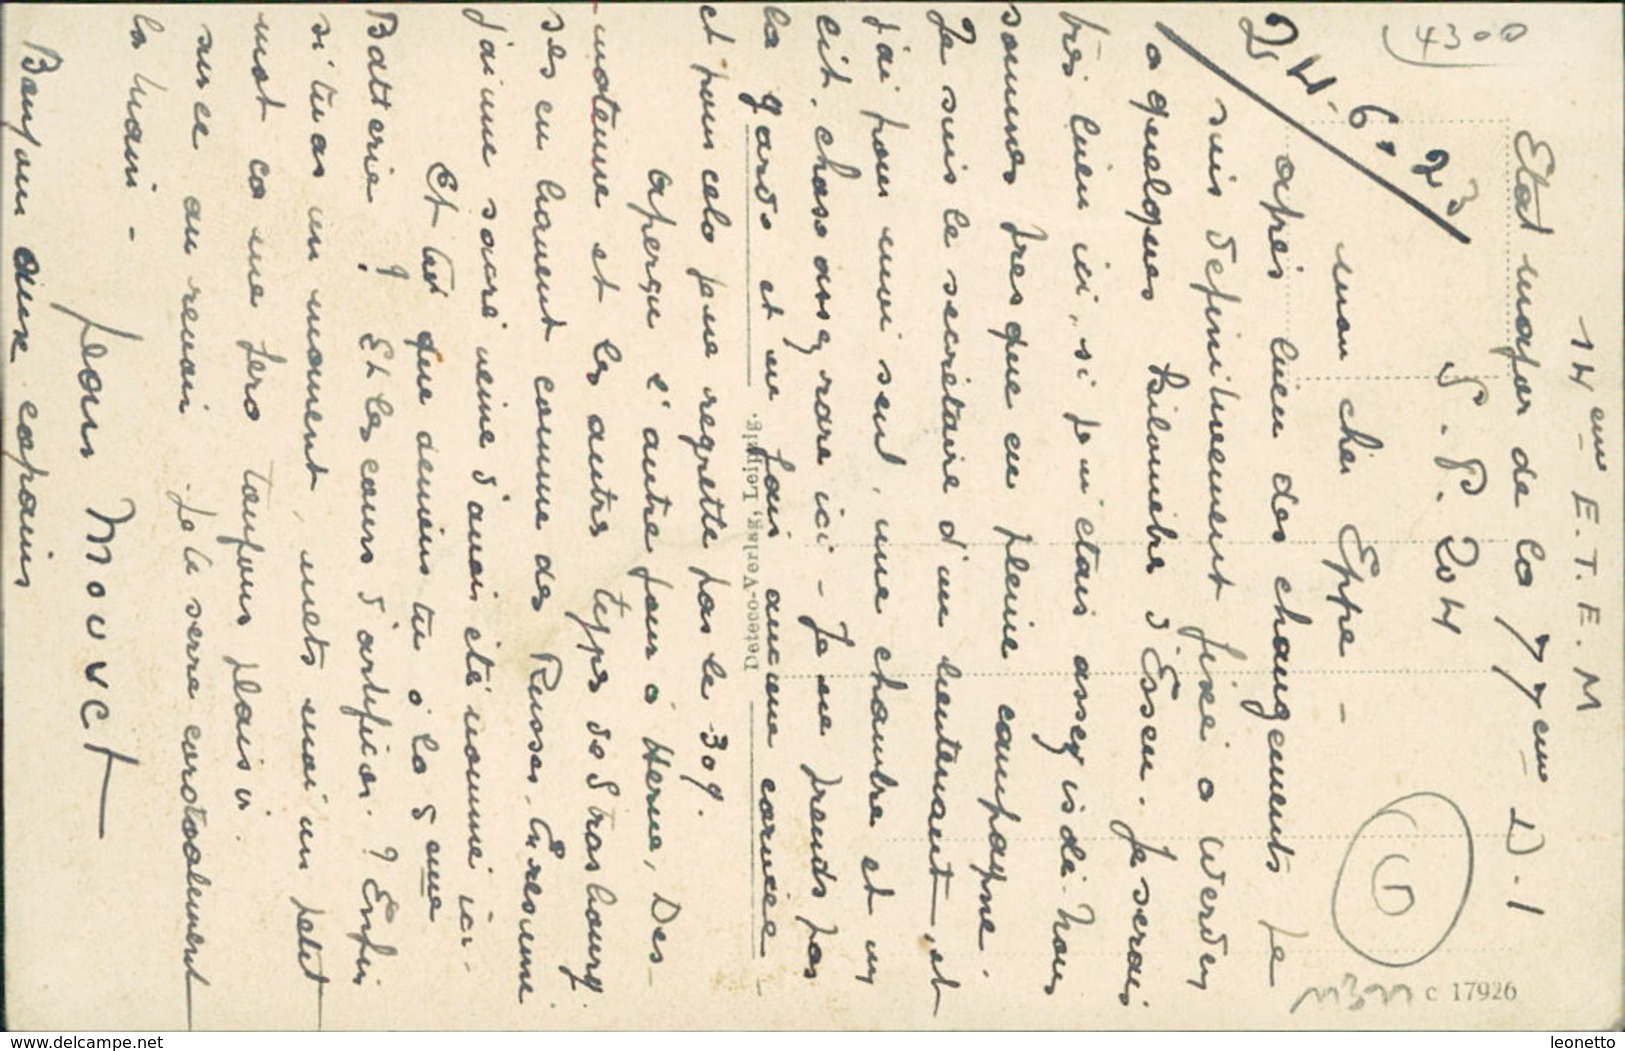 14eme E.T.E.M
Etat major de la 77eme D.I
S.P. 204
24-6-23
mon cher Eppe -
après bien des changements je
suis definitivement fixé a Werden
a quelques kilomètres d'Essen. Je serais
très bien ici, si je n'étais assez isolé. Nous
sommes presque en pleine campagne.
Je suis le secrétaire d'un lieutenant, et
j'ai pour moi seul, une chambre et un
lit, chose assez rare ici - Je ne prends pas
la garde et ne fais aucune corvée
et pour cela je ne regrette pas le 309.
Aperçu l'autre jour à Herne, Des-
moteume et les autres types de Strasbourg
ses en boxent comme des Russes. En resumé
j'aime sacré veine d'avoir été nommé ici.
Et toi que deviens tu à la 5eme
Batterie ? Et les cours d'artifices ? Enfin
si tu as un moment, mets moi un petit
mot ca me fera toujours plaisir.
sur ce au revoir. Je te serre cordialement
la main -
Jean Mouvet
Bonjour aux copains
Deteco-Verlag, Leipzig.
4300
5
C 17926
www.delcampe.net
leonetto